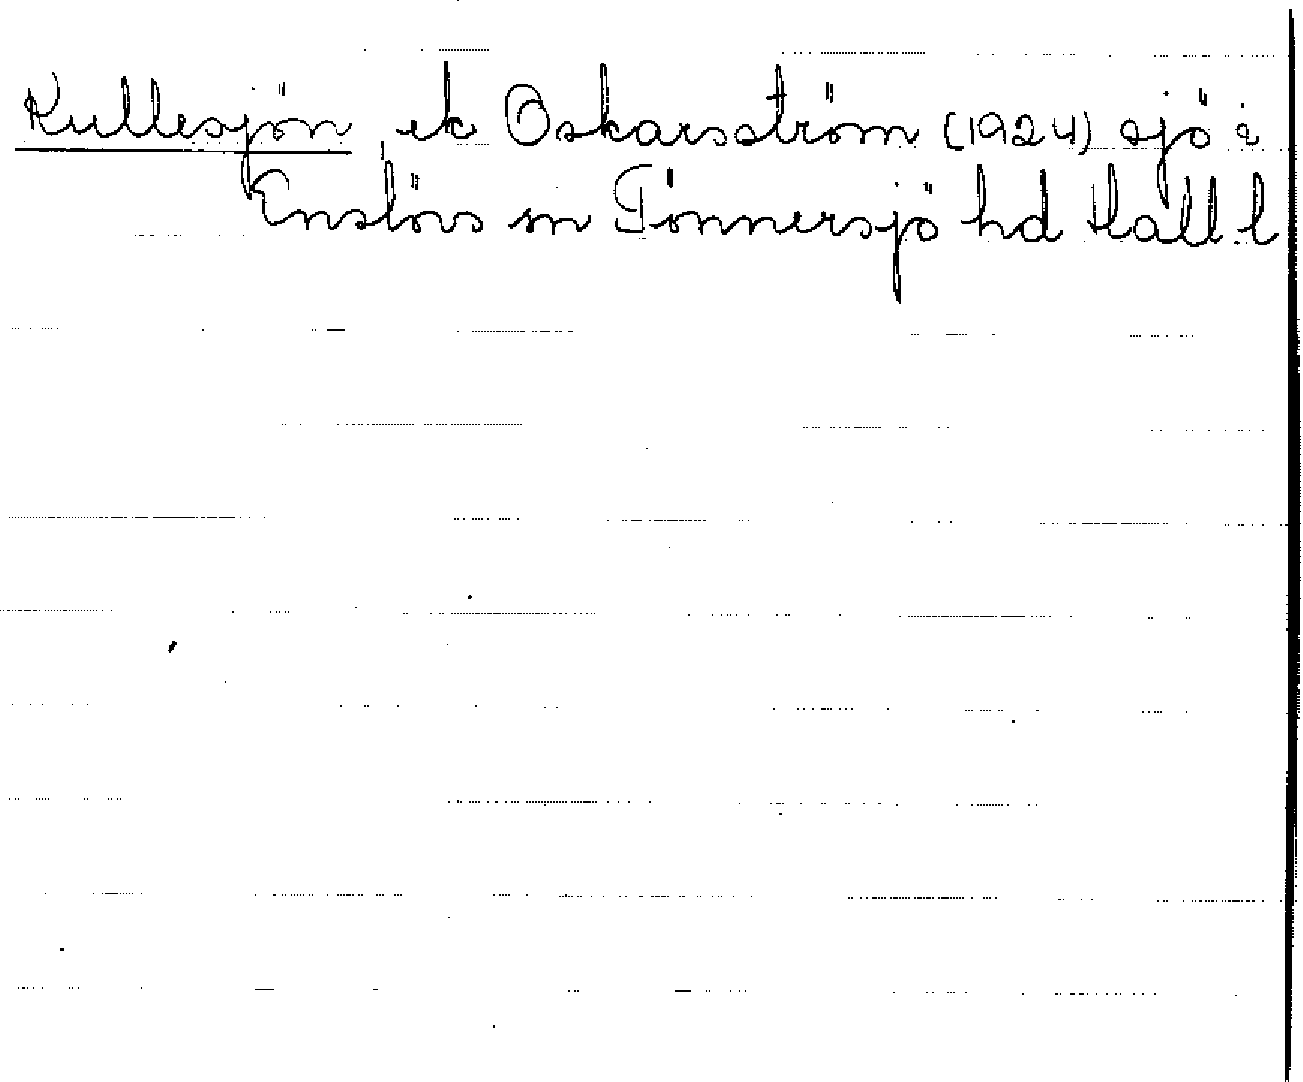 Kullesjön, ek Oskarsström (1924) sjö i
Enslövs sn Tönnersjö hd Hall l